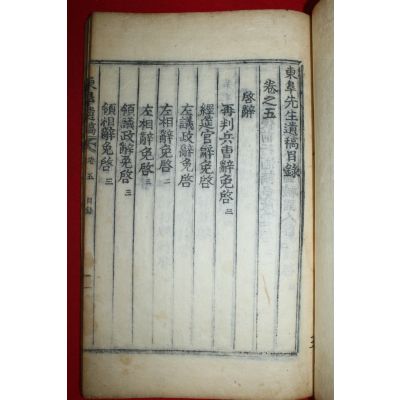 東皐先生遺稿目錄
卷之五
啓辭
再判兵曹辭免啓 三
經筵官辭免啓
左議政辭免啓
左相辭免啓 二
左相辭免啓
領議政辭免啓 三
領相辭免啓 三
東皐遺稿 卷五 目錄